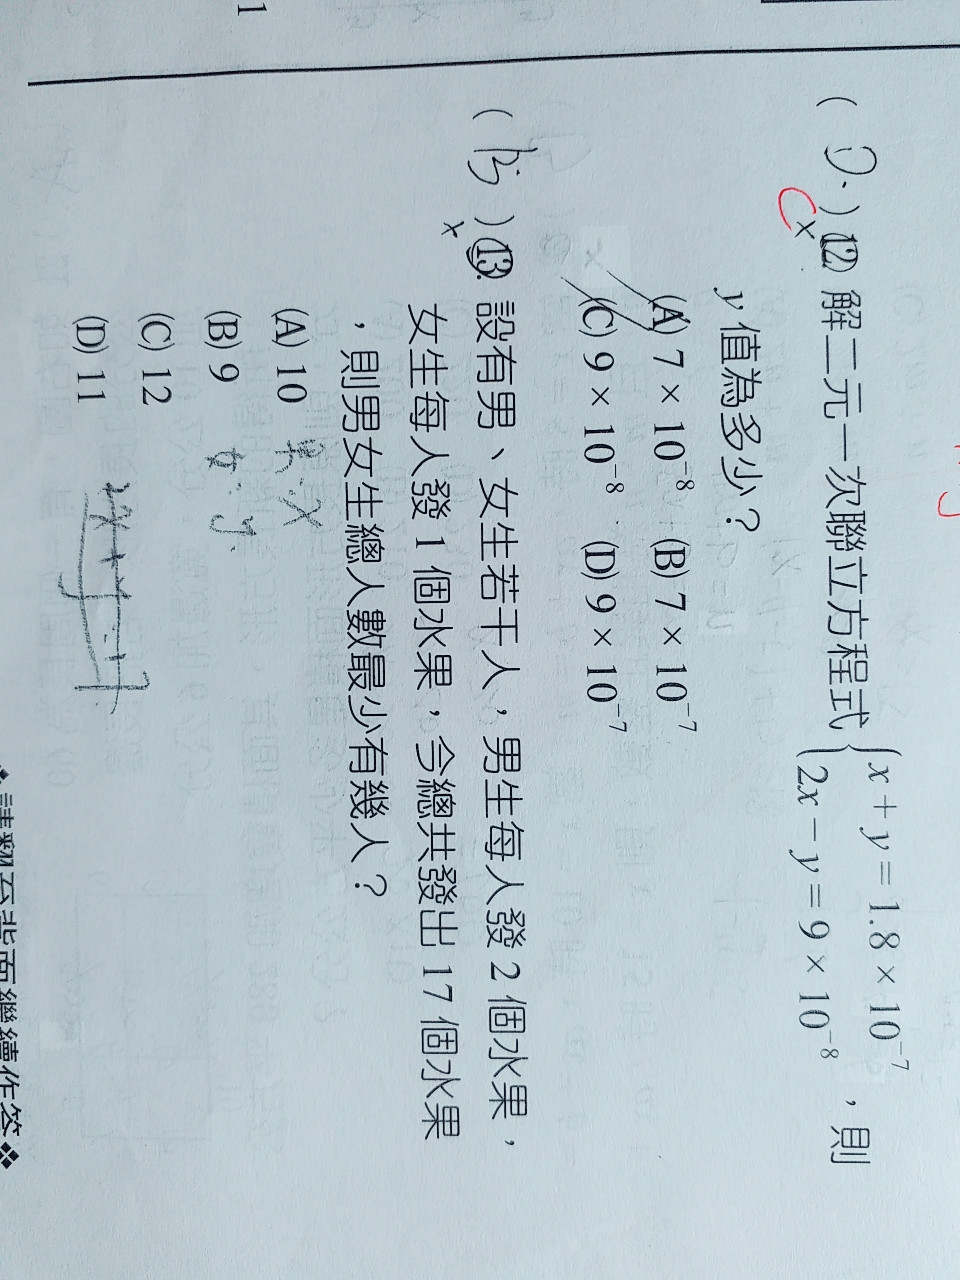 1
( D. ) 12. 解二元一次聯立方程式 { x + y = 1.8 × 10⁻⁷ , 則
C ×
{ 2x − y = 9 × 10⁻⁸
y 值為多少?
(A) 7 × 10⁻⁸ (B) 7 × 10⁻⁷
(C) 9 × 10⁻⁸ (D) 9 × 10⁻⁷
( B ) 13. 設有男、女生若干人,男生每人發 2 個水果,
×
女生每人發 1 個水果,今總共發出 17 個水果
,則男女生總人數最少有幾人?
(A) 10
(B) 9 女: y.
(C) 12
(D) 11
❖請翻至背面繼續作答❖